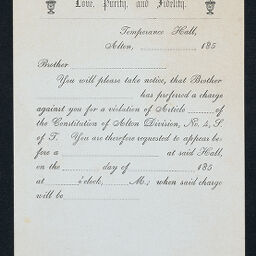 Love, Purity, and Fidelity.
Temperance Hall,
Alton, 185
Brother
You will please take notice, that Brother
has preferred a charge
against you for a violation of Article of
the Constitution of Alton Division, No. 4, S.
of T. You are therefore requested to appear be-
fore a at said Hall,
on the day of 185
at o'clock, M.; when said charge
will be